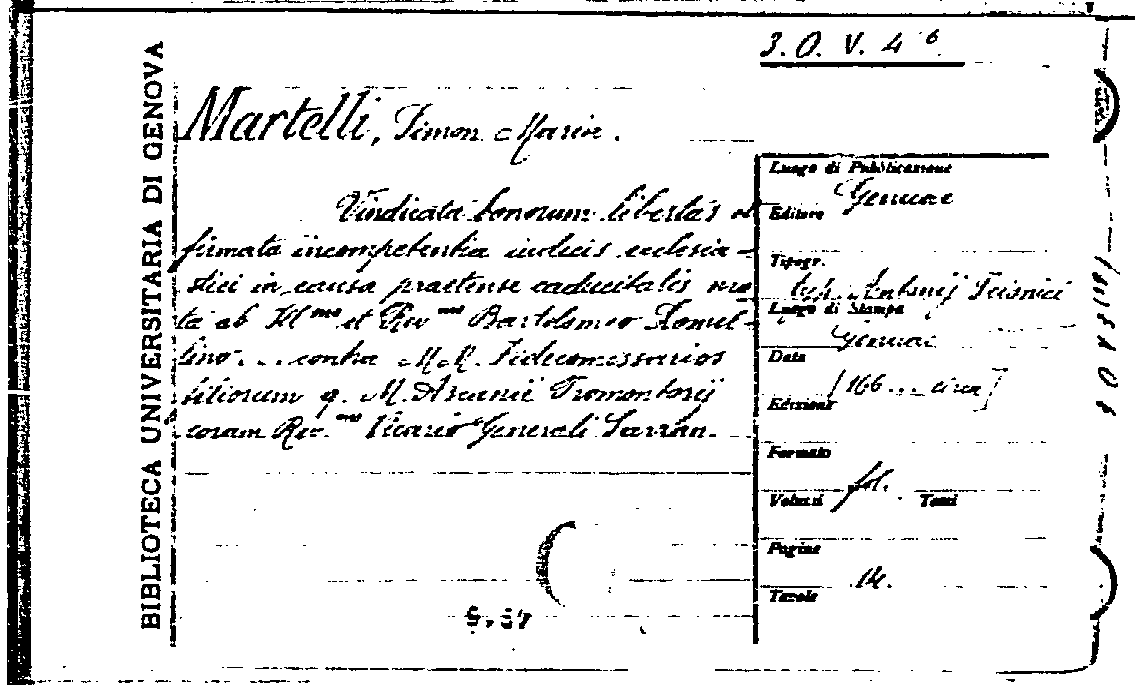 3. O. V. 4 6
BIBLIOTECA UNIVERSITARIA DI GENOVA
Martelli, Simon Maria.
Vindicata bonorum libertas et
firmata incompetentia iudicis ecclesia-
stici in causa praetense caducitatis mo
ta ab Ill.mo et Rev.mo Bartolomeo Lomel-
lino... contra M.M. Fidecomissarios
filiorum q. M. Ascanii Promontorij
coram Rev.mo Vicario Generali Sarzan.
Luogo di Pubblicazione
Genuae
Editore
Tipogr.
Antonij
Luogo di Stampa
Genuae
Data
[166... circa]
Edizione
Formato
fol.
Volumi Tomi
Pagine
14.
Tavole